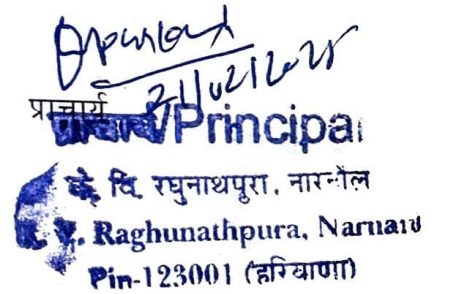 21/02/2025
प्राचार्य
प्राचार्य/Principal
के. वि. रघुनाथपुरा, नारनौल
K. V. Raghunathpura, Narnaul
Pin-123001 (हरियाणा)